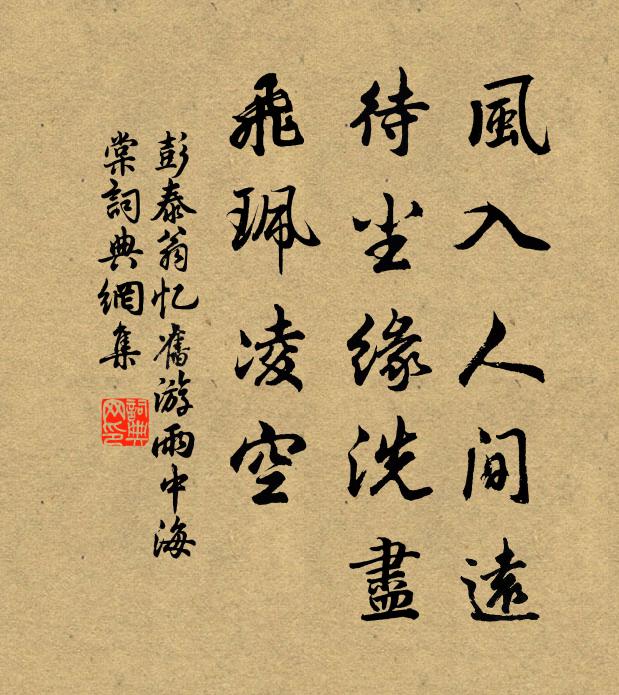 風入人間遠
待尘緣洗盡
飛珮凌空
彭泰翁忆舊游雨中海
棠詞典網集
詞典
网印